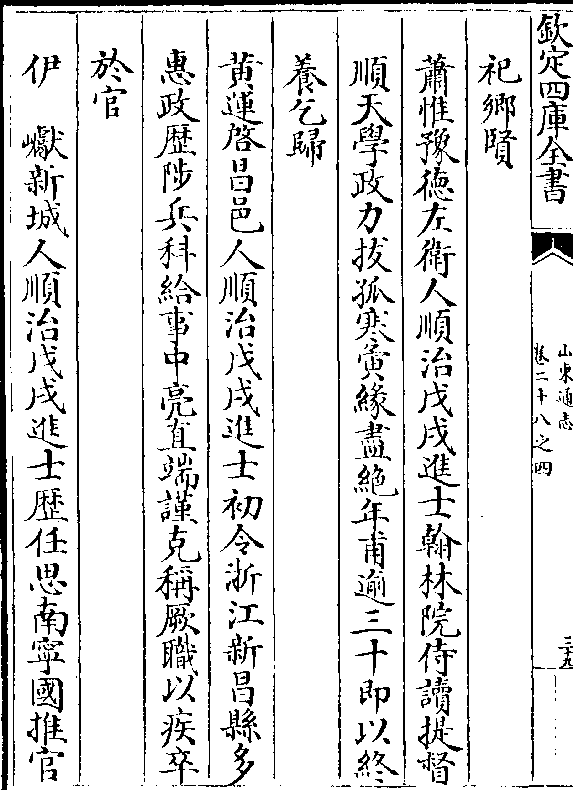 欽定四庫全書
山東通志
卷二十八之四
三十五
祀鄉賢
蕭惟豫德左衛人順治戊戌進士翰林院侍讀提督
順天學政力拔孤寒夤緣盡絕年甫逾三十即以終
養乞歸
黃運啓昌邑人順治戊戌進士初令浙江新昌縣多
惠政歴陟兵科給事中亮直端謹克稱厥職以疾卒
於官
伊　巘新城人順治戊戌進士歴任思南寧國推官